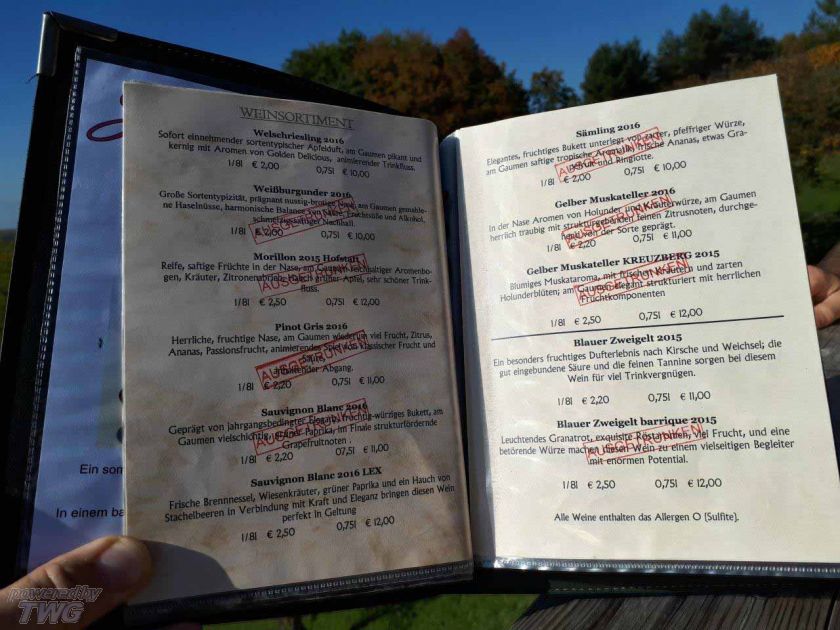 WEINSORTIMENT
Welschriesling 2016
Sofort einnehmender sortentypischer Apfelduft, am Gaumen pikant und
kernig mit Aromen von Golden Delicious, animierender Trinkfluss.
1/8l € 2,00 0,75l € 10,00
Weißburgunder 2016
Große Sortentypizität, prägnant nussig-brotige am Gaumen gemahle-
ne Haselnüsse, harmonische Balance von Fruchtsüße und Alkohol,
Nachhall.
1/8l € 2,00 0,75l € 10,00
AUSGETRUNKEN
Morillon 2015 Hofstatt
Reife, saftige Früchte in der Nase, am Gaumen Aromenbo-
gen, Kräuter, grüner Apfel, sehr schöner Trink-
fluss.
1/8l € 2,50 0,75l € 12,00
AUSGETRUNKEN
Pinot Gris 2016
Herrliche, fruchtige Nase, am Gaumen wiederum viel Frucht, Zitrus,
Ananas, Passionsfrucht, animierendes Spiel von klassischer Frucht und
Abgang.
1/8l € 2,20 0,75l € 11,00
AUSGETRUNKEN
Sauvignon Blanc 2016
Geprägt von jahrgangsbedingter Eleganz, fruchtig-würziges Bukett, am
Gaumen vielschichtig, grüner Paprika, im Finale strukturfördernde
Grapefruitnoten .
1/8l € 2,20 07,5l € 11,00
AUSGETRUNKEN
Sauvignon Blanc 2016 LEX
Frische Brennnessel, Wiesenkräuter, grüner Paprika und ein Hauch von
Stachelbeeren in Verbindung mit Kraft und Eleganz bringen diesen Wein
perfekt in Geltung
1/8l € 2,50 0,75l € 12,00
Sämling 2016
Elegantes, fruchtiges Bukett unterlegt von zarter, pfeffriger Würze,
am Gaumen saftige tropische Aromen, frische Ananas, etwas Gra-
und Ringlotte.
1/8l € 2,00 0,75l € 10,00
AUSGETRUNKEN
Gelber Muskateller 2016
In der Nase Aromen von Holunder und Kräuterwürze, am Gaumen
herrlich traubig mit strukturgebenden feinen Zitrusnoten, durchge-
hend von der Sorte geprägt.
1/8l € 2,20 0,75l € 11,00
AUSGETRUNKEN
Gelber Muskateller KREUZBERG 2015
Blumiges Muskataroma, mit frischen Kräutern und zarten
Holunderblüten; am Gaumen elegant strukturiert mit herrlichen
Fruchtkomponenten
1/8l € 2,50 0,75l € 12,00
AUSGETRUNKEN
Blauer Zweigelt 2015
Ein besonders fruchtiges Dufterlebnis nach Kirsche und Weichsel; die
gut eingebundene Säure und die feinen Tannine sorgen bei diesem
Wein für viel Trinkvergnügen.
1/8l € 2,20 0,75l € 11,00
Blauer Zweigelt barrique 2015
Leuchtendes Granatrot, exquisite Röstaromen, viel Frucht, und eine
betörende Würze machen diesen Wein zu einem vielseitigen Begleiter
mit enormen Potential.
1/8l € 2,50 0,75l € 12,00
AUSGETRUNKEN
Alle Weine enthalten das Allergen O (Sulfite).
Ein som
In einem ba
powered by
TWG